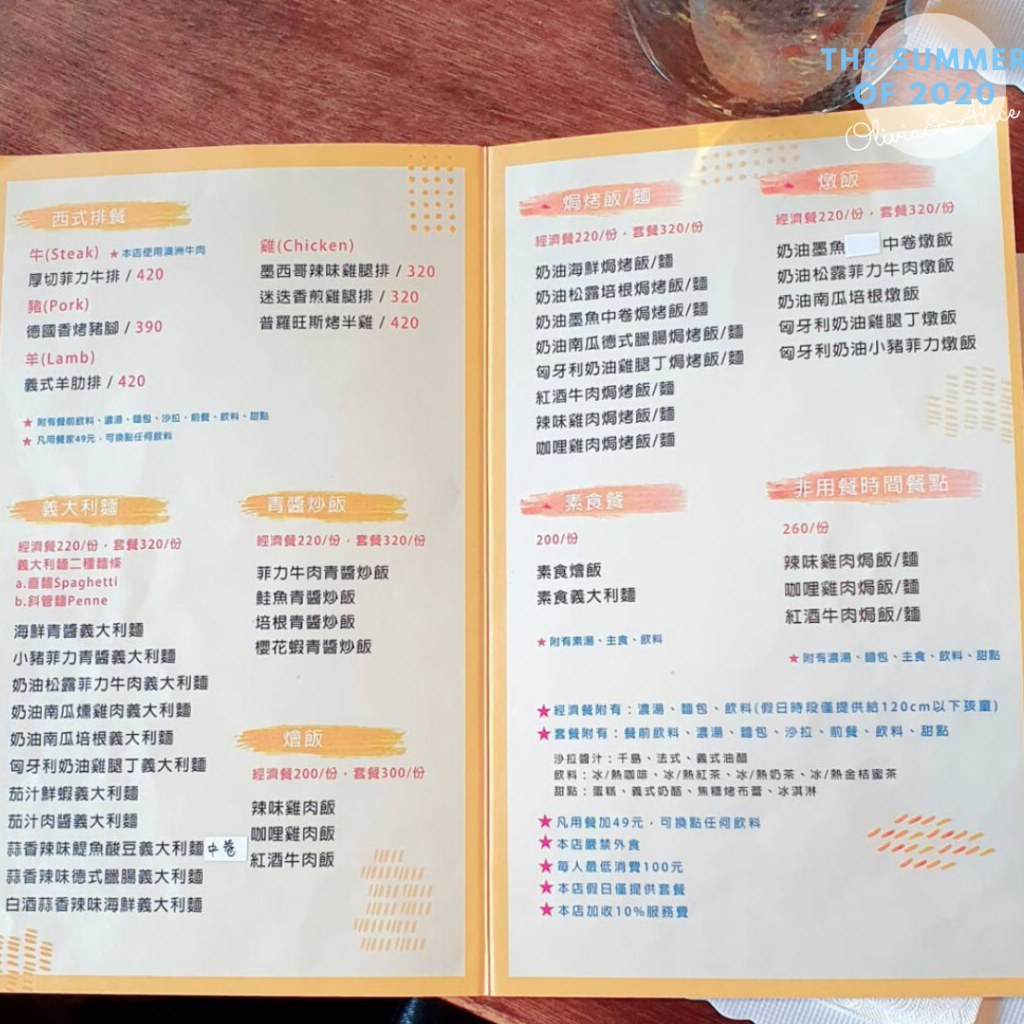 THE SUMMER
OF 2020
Olivia&Alice
西式排餐
牛(Steak) ★本店使用澳洲牛肉
厚切菲力牛排 / 420
豬(Pork)
德國香烤豬腳 / 390
羊(Lamb)
義式羊肋排 / 420
雞(Chicken)
墨西哥辣味雞腿排 / 320
迷迭香煎雞腿排 / 320
普羅旺斯烤半雞 / 420
★ 附有餐前飲料、濃湯、麵包、沙拉、前餐、飲料、甜點
★ 凡用餐家49元，可換點任何飲料
義大利麵
經濟餐220/份，套餐320/份
義大利麵二種麵條
a.直麵Spaghetti
b.斜管麵Penne
海鮮青醬義大利麵
小豬菲力青醬義大利麵
奶油松露菲力牛肉義大利麵
奶油南瓜燻雞肉義大利麵
奶油南瓜培根義大利麵
匈牙利奶油雞腿丁義大利麵
茄汁鮮蝦義大利麵
茄汁肉醬義大利麵
蒜香辣味鯷魚酸豆義大利麵 中卷
蒜香辣味德式臘腸義大利麵
白酒蒜香辣味海鮮義大利麵
青醬炒飯
經濟餐220/份，套餐320/份
菲力牛肉青醬炒飯
鮭魚青醬炒飯
培根青醬炒飯
櫻花蝦青醬炒飯
燴飯
經濟餐200/份，套餐300/份
辣味雞肉飯
咖哩雞肉飯
紅酒牛肉飯
焗烤飯/麵
經濟餐220/份，套餐320/份
奶油海鮮焗烤飯/麵
奶油松露培根焗烤飯/麵
奶油墨魚中卷焗烤飯/麵
奶油南瓜德式臘腸焗烤飯/麵
匈牙利奶油雞腿丁焗烤飯/麵
紅酒牛肉焗烤飯/麵
辣味雞肉焗烤飯/麵
咖哩雞肉焗烤飯/麵
燉飯
經濟餐220/份，套餐320/份
奶油墨魚 中卷燉飯
奶油松露菲力牛肉燉飯
奶油南瓜培根燉飯
匈牙利奶油雞腿丁燉飯
匈牙利奶油小豬菲力燉飯
素食餐
200/份
素食燴飯
素食義大利麵
★附有素湯、主食、飲料
非用餐時間餐點
260/份
辣味雞肉焗飯/麵
咖哩雞肉焗飯/麵
紅酒牛肉焗飯/麵
★附有濃湯、麵包、主食、飲料、甜點
★經濟餐附有：濃湯、麵包、飲料(假日時段僅提供給120cm以下孩童)
★套餐附有：餐前飲料、濃湯、麵包、沙拉、前餐、飲料、甜點
沙拉醬汁：千島、法式、義式油醋
飲料：冰/熱咖啡、冰/熱紅茶、冰/熱奶茶、冰/熱金桔蜜茶
甜點：蛋糕、義式奶酪、焦糖烤布蕾、冰淇淋
★凡用餐加49元，可換點任何飲料
★本店嚴禁外食
★每人最低消費100元
★本店假日僅提供套餐
★本店加收10%服務費